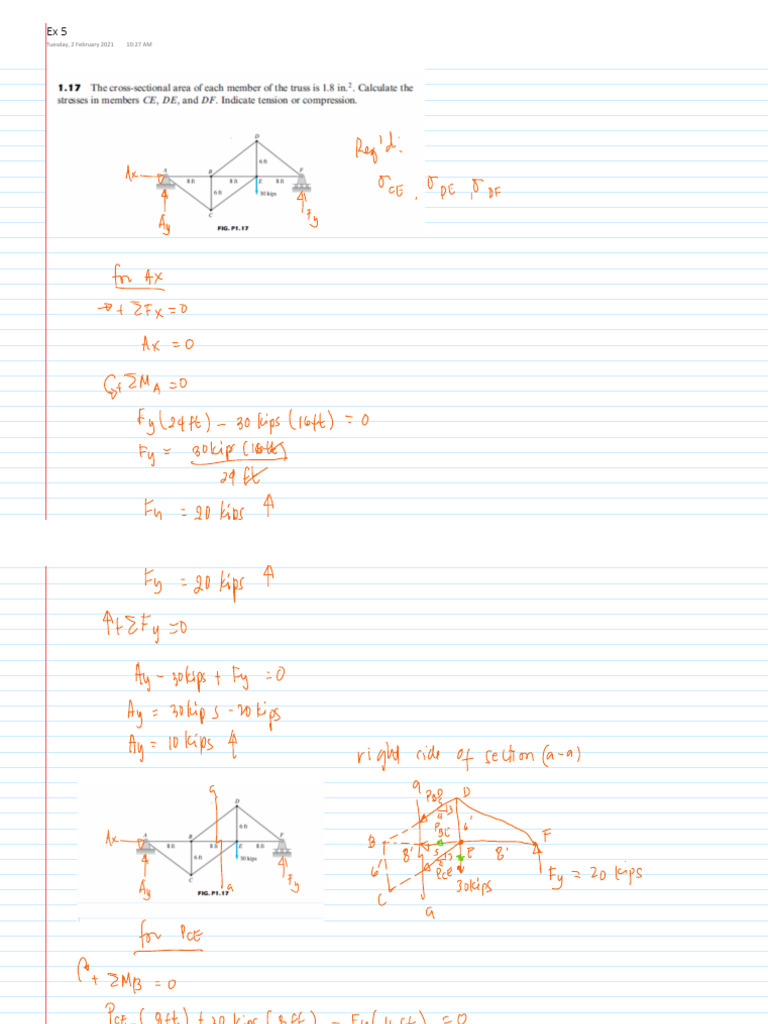 Ex 5
Tuesday, 2 February 2021 10:27 AM
1.17 The cross-sectional area of each member of the truss is 1.8 in.². Calculate the
stresses in members CE, DE, and DF. Indicate tension or compression.
Req'd:
σCE, σDE, σDF
D
6 ft
Ax
A
B
E
F
8 ft
8 ft
8 ft
6 ft
30 kips
C
Ay
Fy
FIG. P1.17
for Ax
→+ ΣFx = 0
Ax = 0
↺+ ΣMA = 0
Fy (24ft) - 30 kips (16ft) = 0
Fy = 30kip (16ft)
24 ft
Fy = 20 kips ↑
Fy = 20 kips ↑
↑+ ΣFy = 0
Ay - 30kips + Fy = 0
Ay = 30kips - 20kips
Ay = 10 kips ↑
right side of section (a-a)
a
D
6 ft
Ax
A
B
E
F
8 ft
8 ft
8 ft
6 ft
30 kips
C
a
Ay
Fy
FIG. P1.17
a
D
PBD
6'
B
F
8'
E
8'
6'
PCE
C
30kips
Fy = 20 kips
a
for PCE
+ ΣMB = 0
PCE (8ft) + 30 kips (8ft) - Fy (16ft) = 0